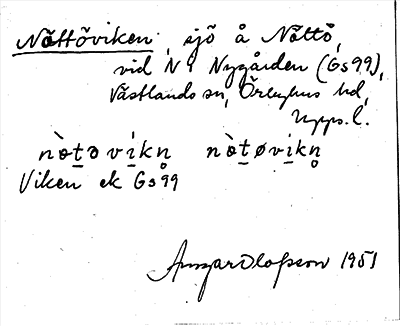 Nöttöviken, sjö å Nöttö,
vid N. Nygården (Gs 99),
Västlands sn, Örbyhus hd,
Upps. l.
nòtøvíkn̥ nòtøvíkn̥
Viken ek Gs 99
Ansgar Olofsson 1951